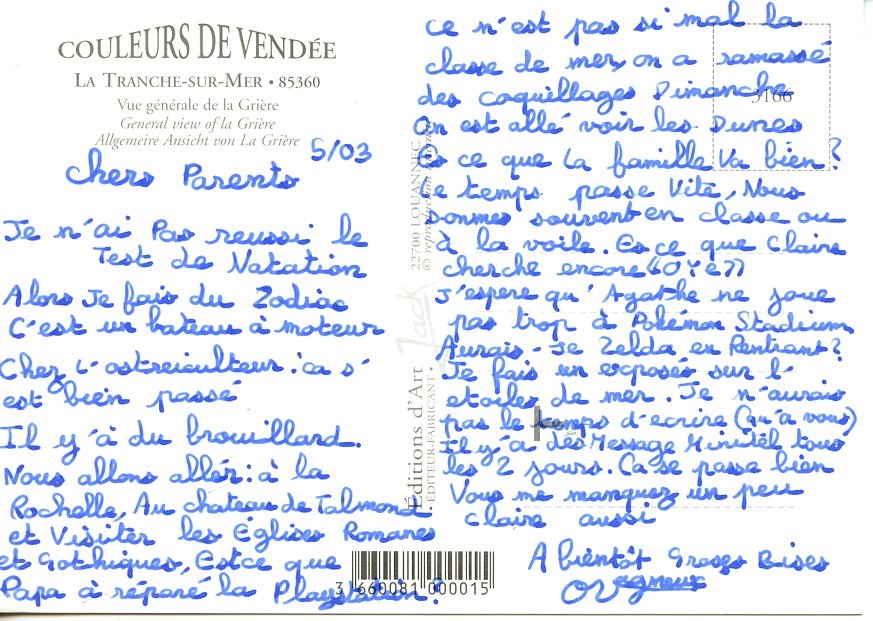 COULEURS DE VENDÉE
LA TRANCHE-SUR-MER • 85360
Vue générale de la Grière
General view of la Grière
Allgemeine Ansicht von La Grière
5/03
Chers Parents
Je n'ai Pas reussi le
Test de Natation
Alors Je fais du Zodiac
C'est un bateau à moteur
Chez L'ostreiculteur : ca s'
est bien passé
Il y'à du brouillard.
Nous allons aller : à la
Rochelle, Au chateau de Talmond
et Visiter les Églises Romanes
et Gothiques, Estce que
Papa à réparé la Playstation ?
3 660081 000015
Éditions d'Art Jack
• ÉDITEUR-FABRICANT •
22700 LOUANNEC
© reproduction
3166
ce n'est pas si mal la
classe de mer, on a ramassé
des coquillages Dimanche
On est allé voir les Dunes
Es ce que La famille Va bien ?
Le temps passe Vite, Nous
sommes souvent en classe ou
à la voile. Es ce que Claire
cherche encore "OYé"
J'espere qu'Agathe ne joue
pas trop à Pokémon Stadium
Aurais-Je Zelda en Rentrant ?
Je fais un exposés sur l'
etoiles de mer. Je n'aurais
pas le temps d'ecrire (qu'a vous)
Il y'a des Message Minitel tous
les 2 jours. Ca se passe bien
Vous me manquez un peu
Claire aussi
A bientôt Groses Bises